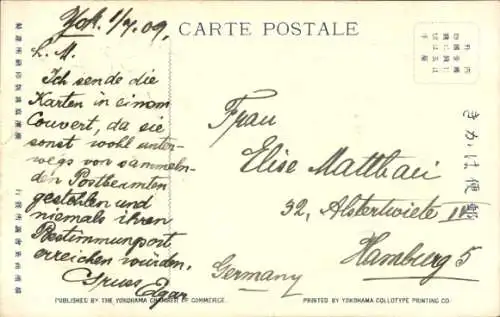 Yok. 1/7.09.
L. M.
Ich sende die
Karten in einem
Couvert, da sie
sonst wohl unter-
wegs von sammeln-
den Postbeamten
gestohlen und
niemals ihren
Bestimmungsort
erreichen würden.
Gruss Edgar
CARTE POSTALE
きかは便郵
Frau
Elise Matthaei
32, Alstertwiete III
Hamburg 5
Germany
PUBLISHED BY THE YOKOHAMA CHAMBER OF COMMERCE.
PRINTED BY YOKOHAMA COLLOTYPE PRINTING CO.